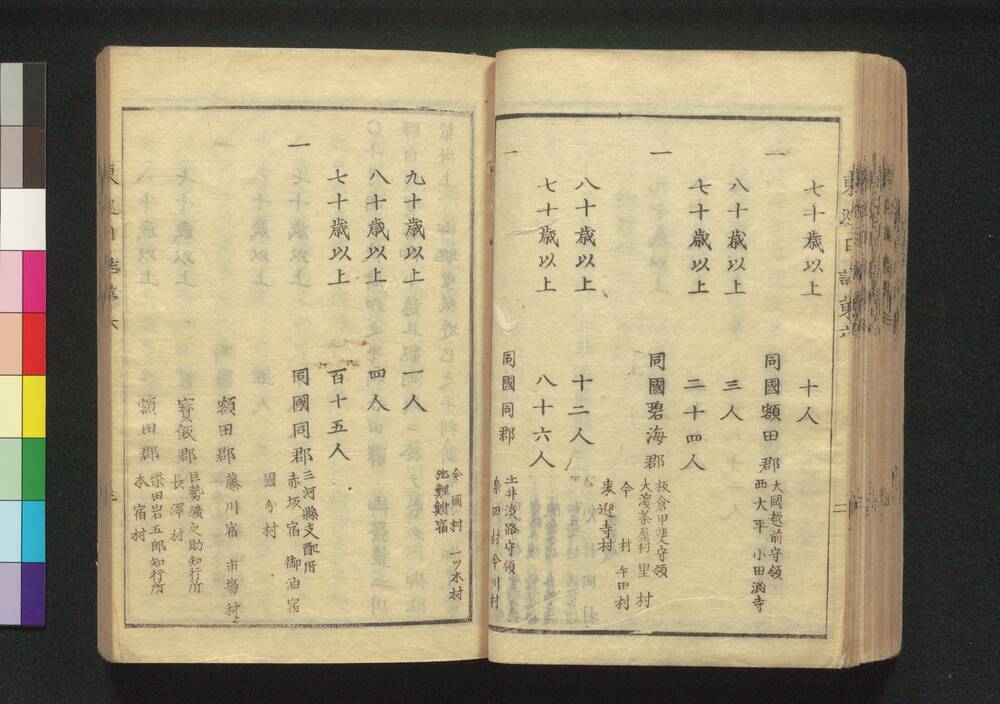 七十歳以上　十人
一　同國額田郡　大岡越前守領
西大平　小田渕寺
八十歳以上　三人
七十歳以上　二十四人
一　同國碧海郡　板倉甲斐守領
大濱茶屋村　里村
今村　牛田村
来迎寺村
八十歳以上　十二人
七十歳以上　八十六人
一　同國同郡　土井淡路守領
泉田村　今川村
今岡村　一ツ木村
池鯉鮒宿
九十歳以上　一人
八十歳以上　四人
七十歳以上　百十五人
一　同國同郡　三河縣支配所
赤坂宿　御油宿
國分村
額田郡　藤川宿　市場村
寳飯郡　巨勢鐖之助知行所
長澤村
額田郡　柴田岩五郎知行所
本宿村
東巡日誌第六
二